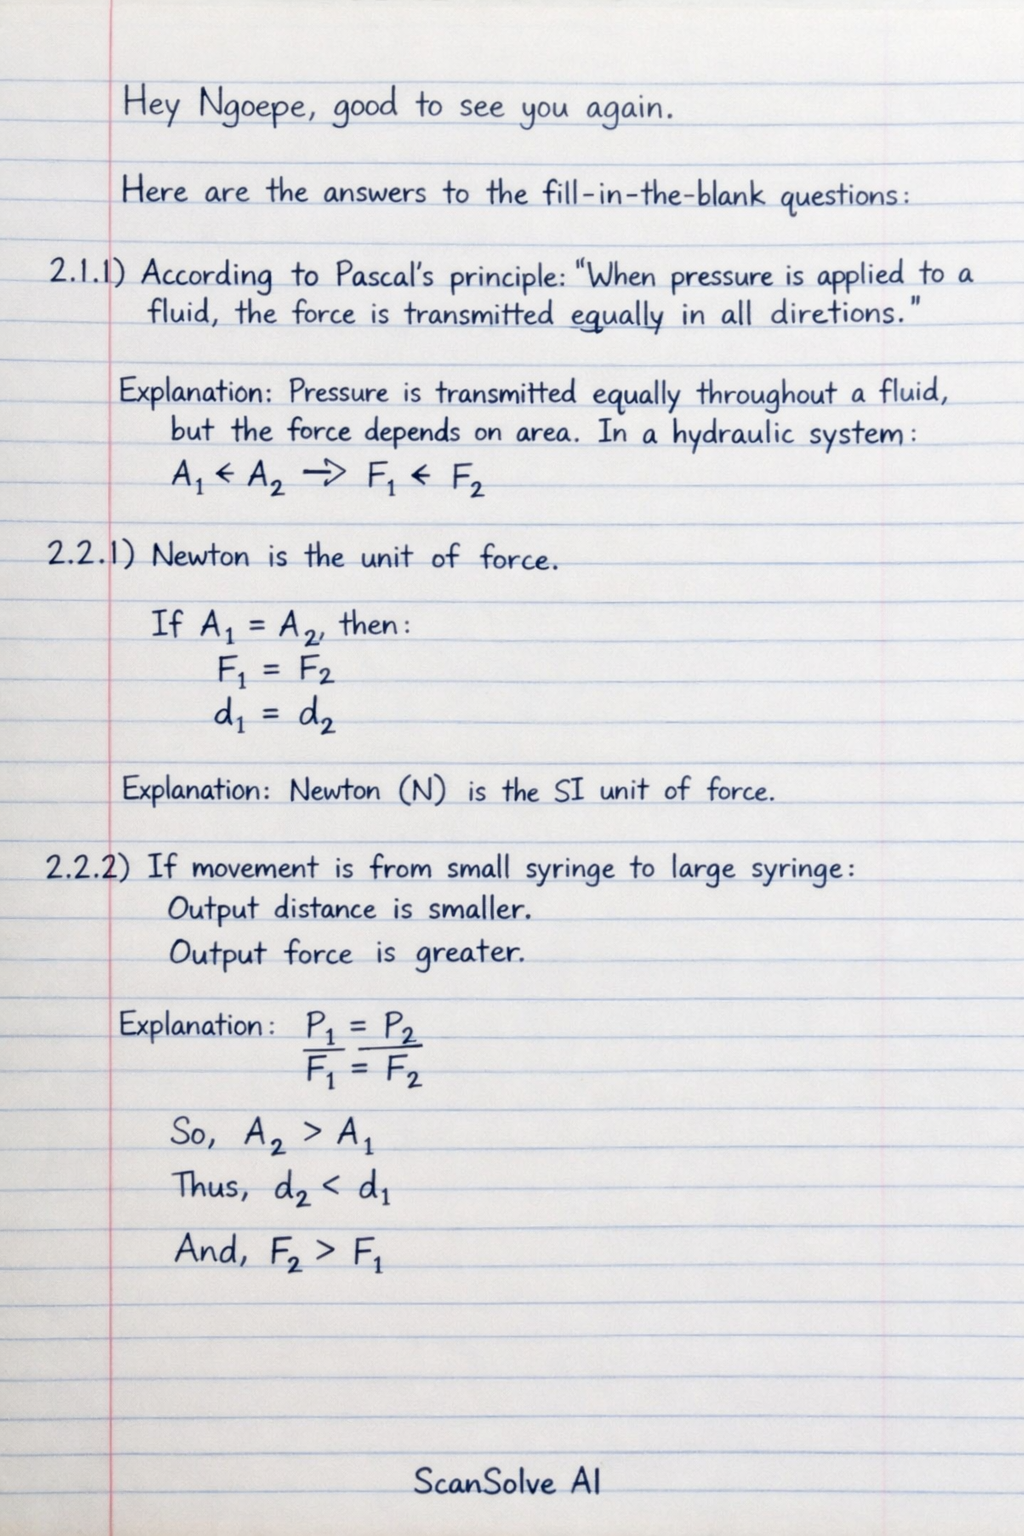 Hey Ngoepe, good to see you again.
Here are the answers to the fill-in-the-blank questions:
2.1.1) According to Pascal's principle: "When pressure is applied to a
fluid, the force is transmitted equally in all diretions."
Explanation: Pressure is transmitted equally throughout a fluid,
but the force depends on area. In a hydraulic system:
A₁ < A₂ → F₁ < F₂
2.2.1) Newton is the unit of force.
If A₁ = A₂, then:
F₁ = F₂
d₁ = d₂
Explanation: Newton (N) is the SI unit of force.
2.2.2) If movement is from small syringe to large syringe:
Output distance is smaller.
Output force is greater.
Explanation: P₁ = P₂
F₁ = F₂
So, A₂ > A₁
Thus, d₂ < d₁
And, F₂ > F₁
ScanSolve AI